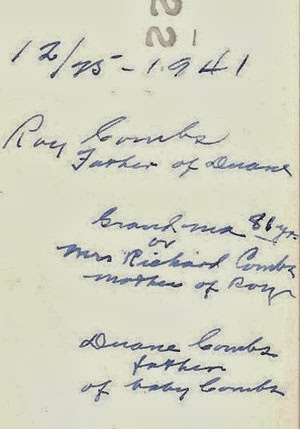 12/25-1941
Roy Combs
Father of Duane
Grandma 86 yr.
or
Mrs Richard Combs
mother of Roy
Duane Combs
father
of baby Combs